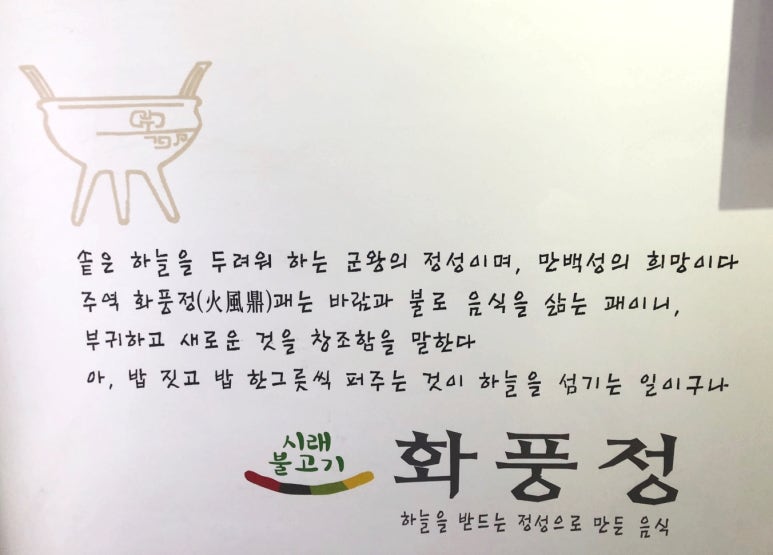 솥은 하늘을 두려워 하는 군왕의 정성이며, 만백성의 희망이다
주역 화풍정(火風鼎)괘는 바람과 불로 음식을 삶는 괘이니,
부귀하고 새로운 것을 창조함을 말한다
아, 밥 짓고 밥 한그릇씩 퍼주는 것이 하늘을 섬기는 일이구나
시래
불고기
화풍정
하늘을 받드는 정성으로 만든 음식